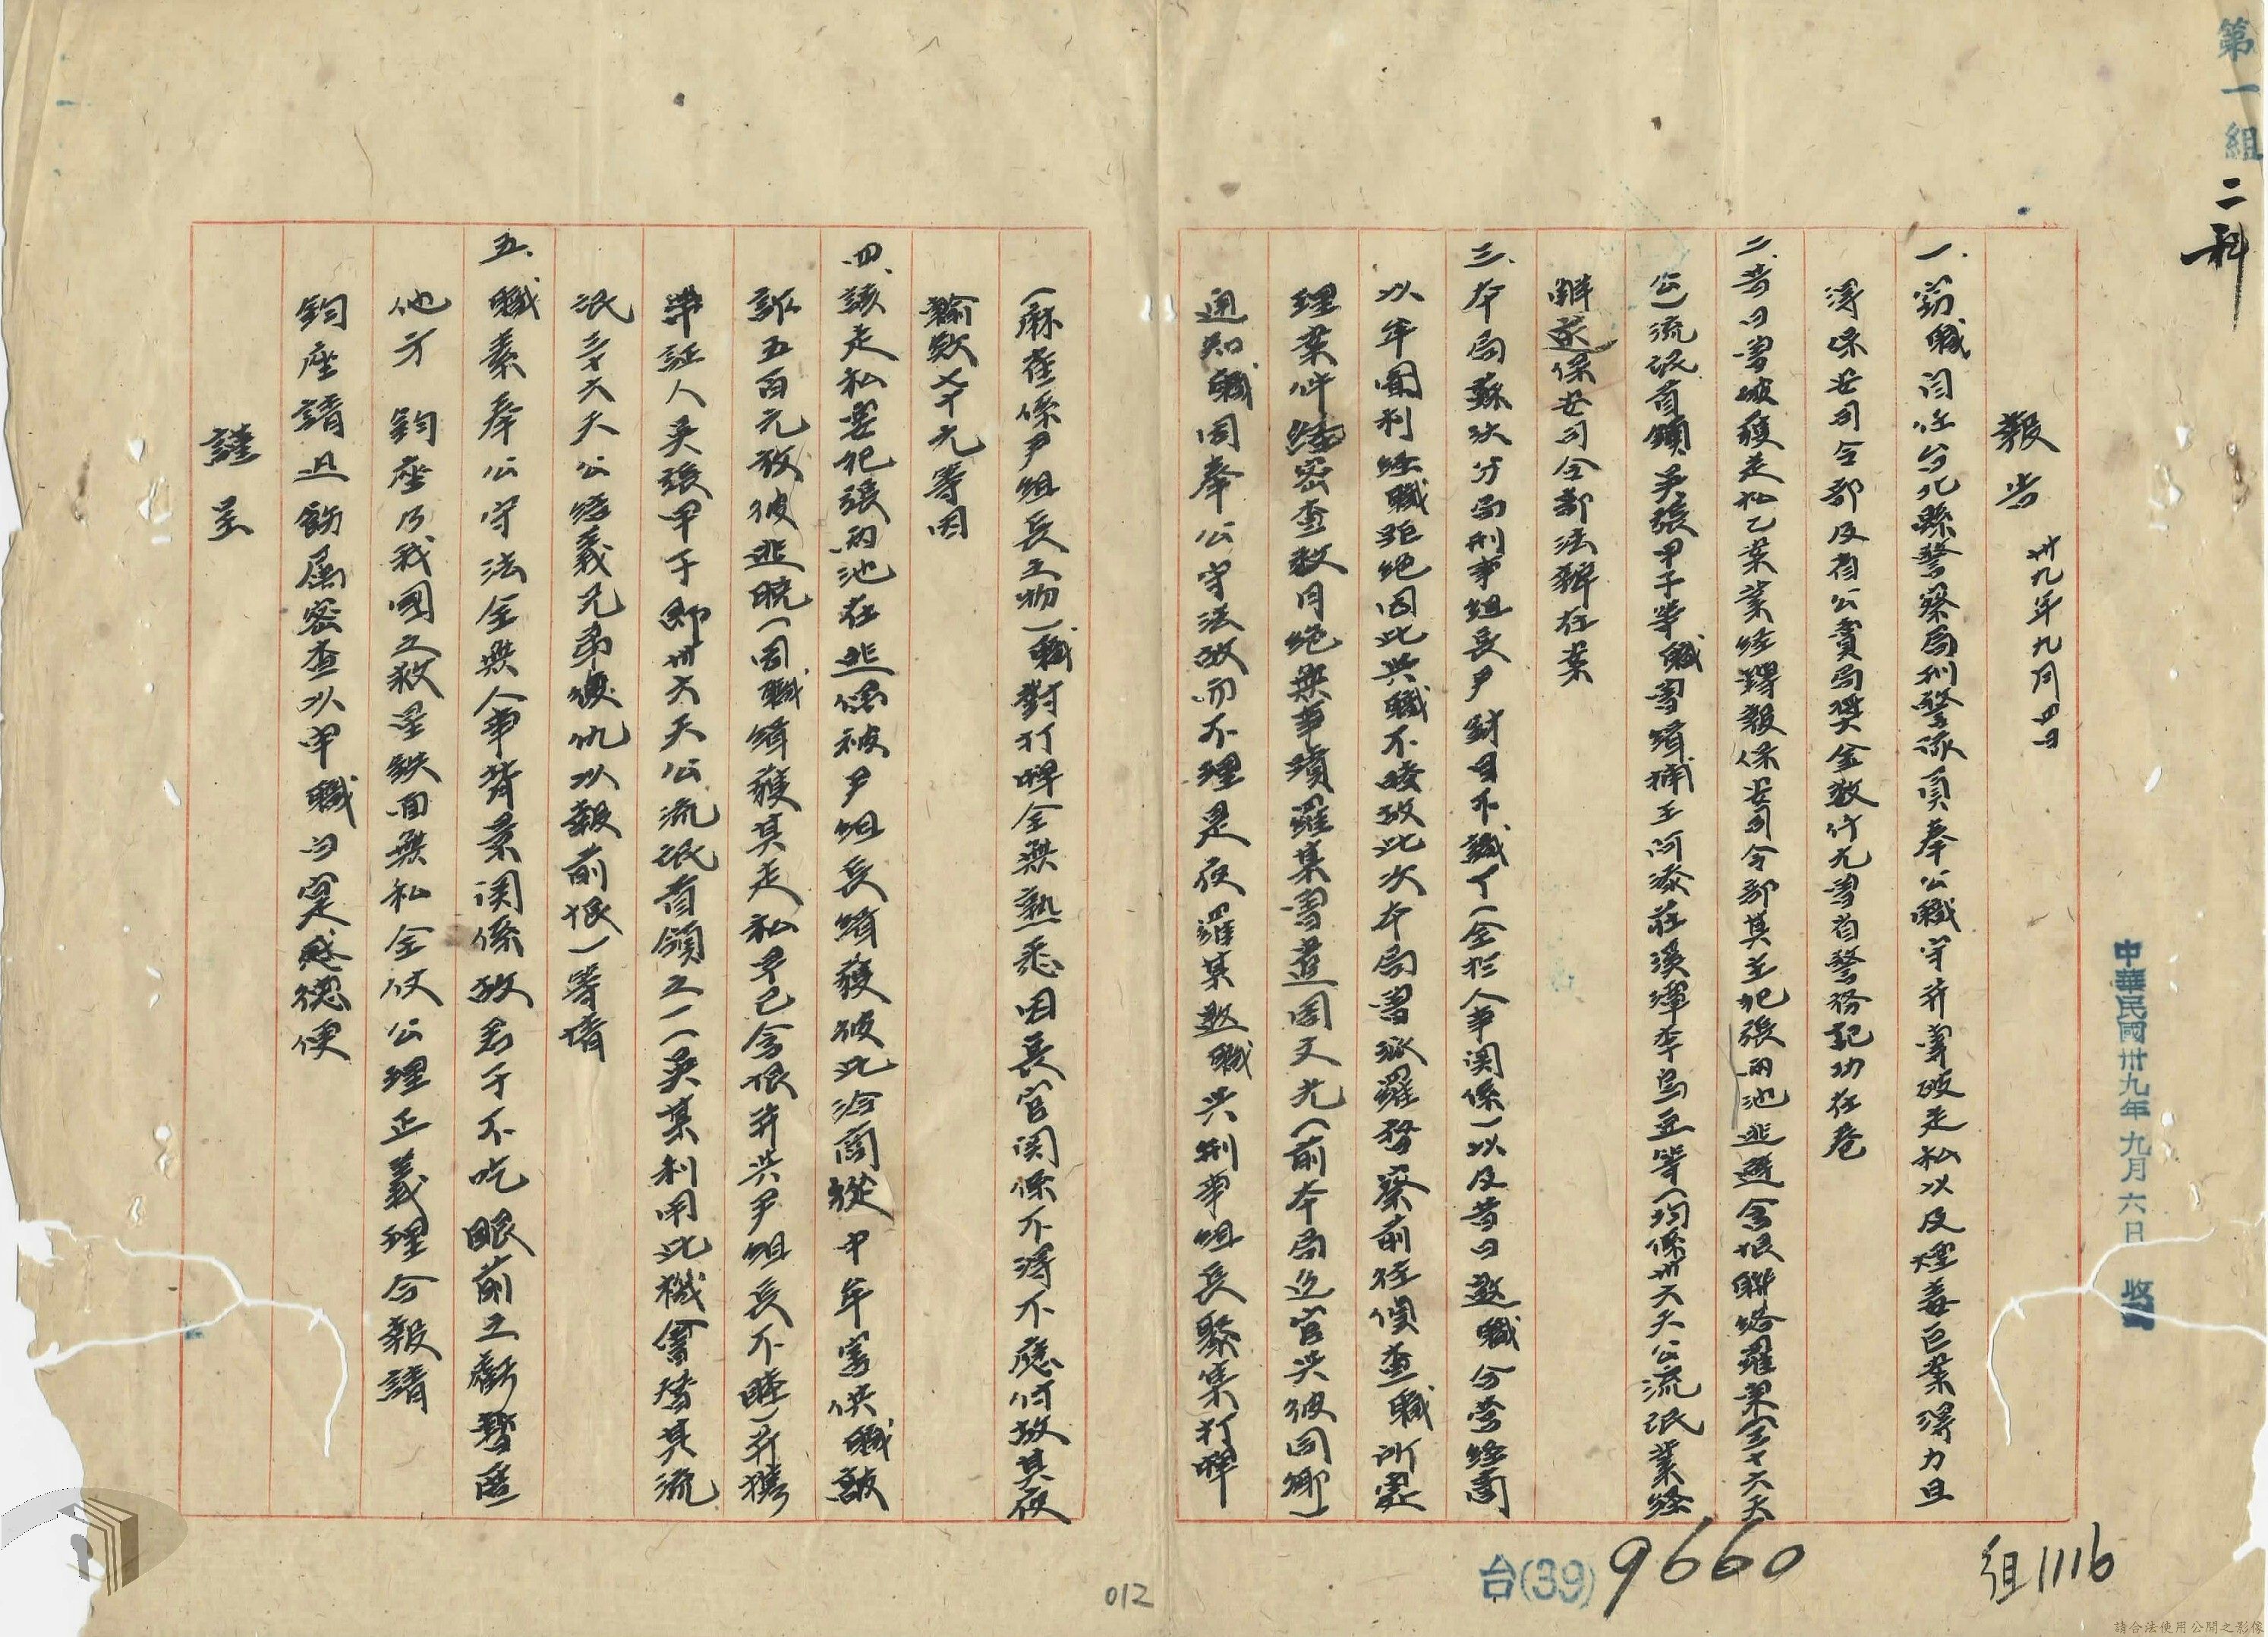 第一組
二科
中華民國卅九年九月六日 收
報告 卅九年九月四日
一、竊職閆任台北縣警察局刑警派員奉公職守并曾破走私以及煙毒巨案得力且
得保安司令部及省公賣局獎金數仟元曾省警務記功在卷
二、昔日曾破獲走私乙案業經撏報保安司令部其主犯張雨池逃避含恨聯絡羅某(三十六天
公)流氓首領吳張甲子等職曾緝捕王阿添莊溪潭李烏豆等(均係卅六天公流氓業經
解送保安司令部法辦在案
三、本局蘇汰分局刑事組長尹財目不識丁(全於人事関係)以及昔日邀職合營經商
以牟圖利經職拒絕因此與職不睦故此次本局曾派羅督察前往偵查職所處
理案件經密查數月絕無事蹟羅某曾遣周天光(前本局巡官與彼同鄉)
通知職因奉公守法故而不理是夜羅某邀職與刑事組長聚集打牌
(麻雀係尹組長主物)職對打牌全無熟悉因長官関係不得不應付故其夜
輸欵 元等因
四、該走私要犯張雨池在逃係被尹組長緝獲彼此洽商從中牟害供職敲
詐五百元放彼逃脫(因職緝獲其走私早已含恨并與尹組長不睦)并攜
帶証人吳張甲子鄉卅六天公流氓首領之一(吳某利用此機會替其流
氓三十六天公結義兄弟復仇以報前恨)等情
五、職素奉公守法全無人事背景関係故君子不吃眼前之虧暫匿
他方 鈞座乃我國之救星鉄面無私全仗公理正義理合報請
鈞座請迅飭屬密查以申職白寔感德便
謹呈
台(39)9660
組1116
012
請合法使用公開之影像